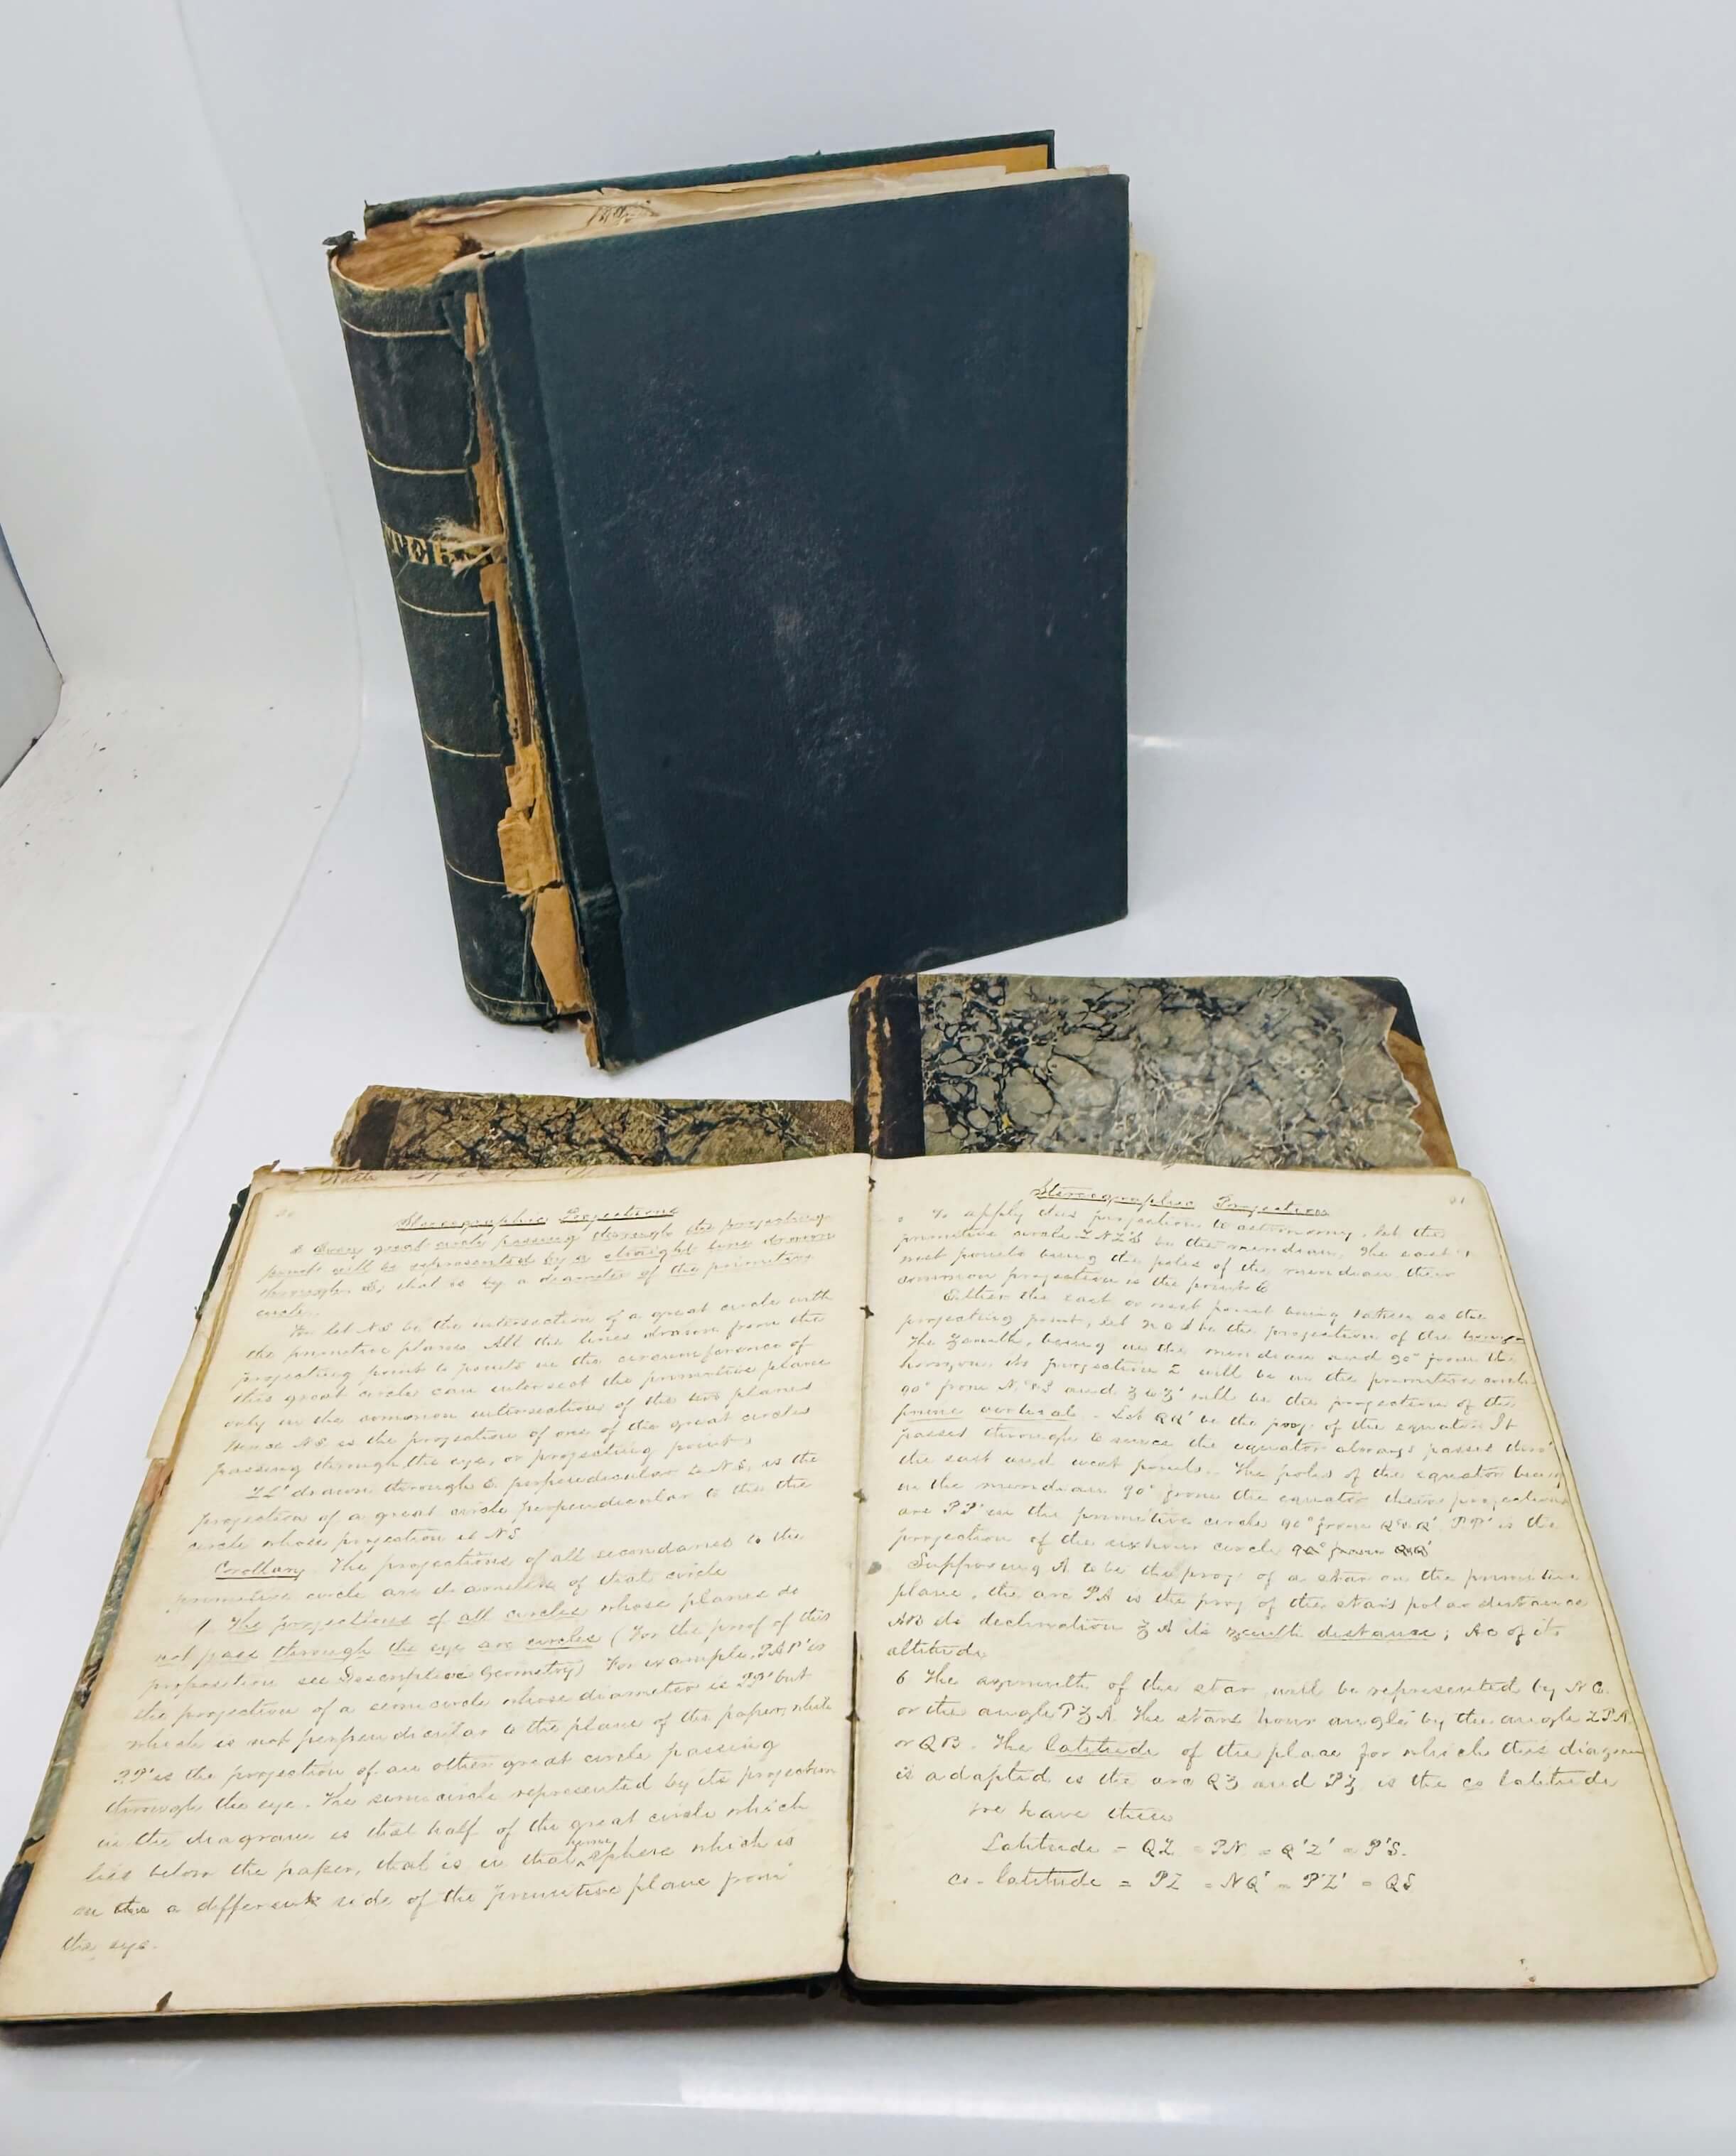 TER
Stereographic Projections
3 Every great circle passing through the projecting
point will be represented by a straight line drawn
through E, that is by a diameter of the primitive
circle.
For let NS be the intersection of a great circle with
the primitive plane. All the lines drawn from the
projecting point to points in the circumference of
this great circle can intersect the primitive plane
only in the common intersection of the two planes
Hence NS is the projection of one of the great circles
passing through the eye, or projecting point
ZZ' drawn through E perpendicular to NS, is the
projection of a great circle perpendicular to the the
circle whose projection is NS
Corollary. The projections of all secondaries to the
primitive circle are diameters of that circle
4 The projections of all circles whose planes do
not pass through the eye are circles (For the proof of this
proposition see Descriptive Geometry) For example, PAP' is
the projection of a semicircle whose diameter is PP' but
which is not perpendicular to the plane of the paper, while
PP' is the projection of an other great circle passing
through the eye. The semicircle represented by its projection
in the diagram is that half of the great circle which
lies below the paper, that is in that hemisphere which is
on the a different side of the primitive plane from
the eye.
Stereographic Projections
To apply this projection to astronomy, let the
primitive circle ZNZ'S be the meridian, the east &
west points being the poles of the meridian, their
common projection is the point E
Either the east or west point being taken as the
projecting point, let be the projection of the
The Zenith, being in the meridian and 90° from the
horizon its projection Z will be in the primitive circle
90° from N & S and will be the projection of the
prime vertical. Let QQ' be the proj. of the equator It
passes through E since the equator always passes thro'
the east and west points. The poles of the equator being
in the meridian 90° from the equator their projections
are PP' in the primitive circle 90° from Q & Q'. PP' is the
projection of the six hour circle 90° from QQ'
Supposing A to be the proj. of a star on the primitive
plane, the arc PA is the proj of the stars polar distance
AB its declination ZA its zenith distance; AC of its
altitude
6 The azimuth of the star will be represented by NC.
or the angle PZA. The stars hour angle by the angle ZPA
or QB. The latitude of the place for which this diagram
is adapted is the arc QZ and PZ is the co latitude
we have then
Latitude = QZ = PN = Q'Z' = P'S.
co-latitude = PZ = NQ' = P'Z' = QS